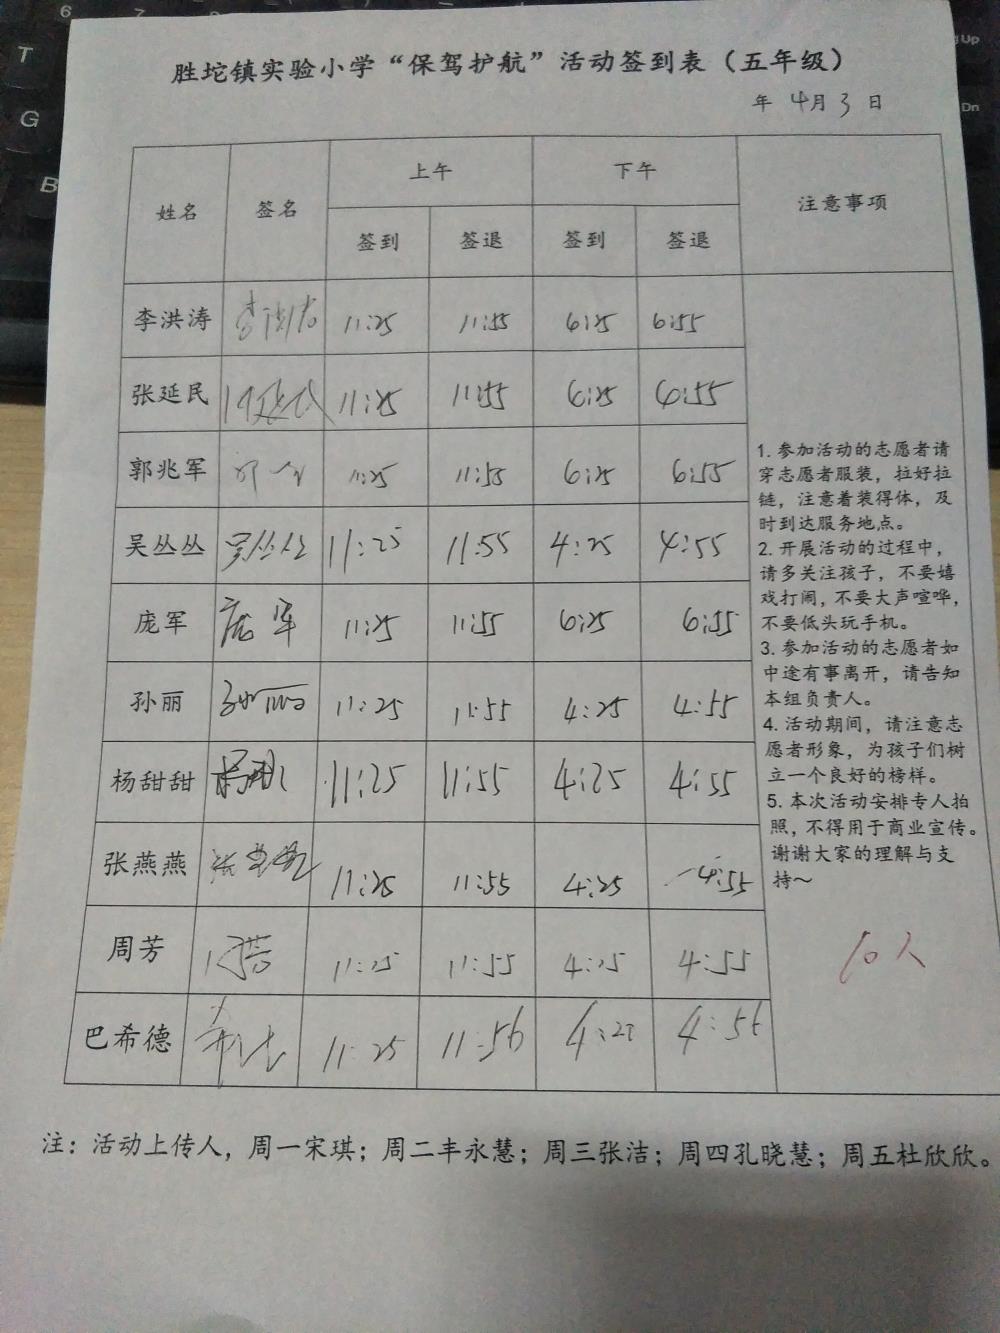 胜坨镇实验小学“保驾护航”活动签到表（五年级）
年 4月3日
姓名 签名 上午 下午 注意事项
签到 签退 签到 签退
李洪涛 李洪涛 11:25 11:55 6:25 6:55
张延民 张延民 11:25 11:55 6:25 6:55
郭兆军 11:25 11:55 6:25 6:55
吴丛丛 吴丛丛 11:25 11:55 4:25 4:55
庞军 庞军 11:25 11:55 6:25 6:55
孙丽 孙丽 11:25 11:55 4:25 4:55
杨甜甜 11:25 11:55 4:25 4:55
张燕燕 张燕燕 11:25 11:55 4:25 4:55
周芳 周芳 11:25 11:55 4:25 4:55
巴希德 11:25 11:56 4:56
1. 参加活动的志愿者请
穿志愿者服装，拉好拉
链，注意着装得体，及
时到达服务地点。
2. 开展活动的过程中，
请多关注孩子，不要嬉
戏打闹，不要大声喧哗，
不要低头玩手机。
3. 参加活动的志愿者如
中途有事离开，请告知
本组负责人。
4. 活动期间，请注意志
愿者形象，为孩子们树
立一个良好的榜样。
5. 本次活动安排专人拍
照，不得用于商业宣传。
谢谢大家的理解与支
持～
10人
注：活动上传人，周一宋琪；周二丰永慧；周三张洁；周四孔晓慧；周五杜欣欣。